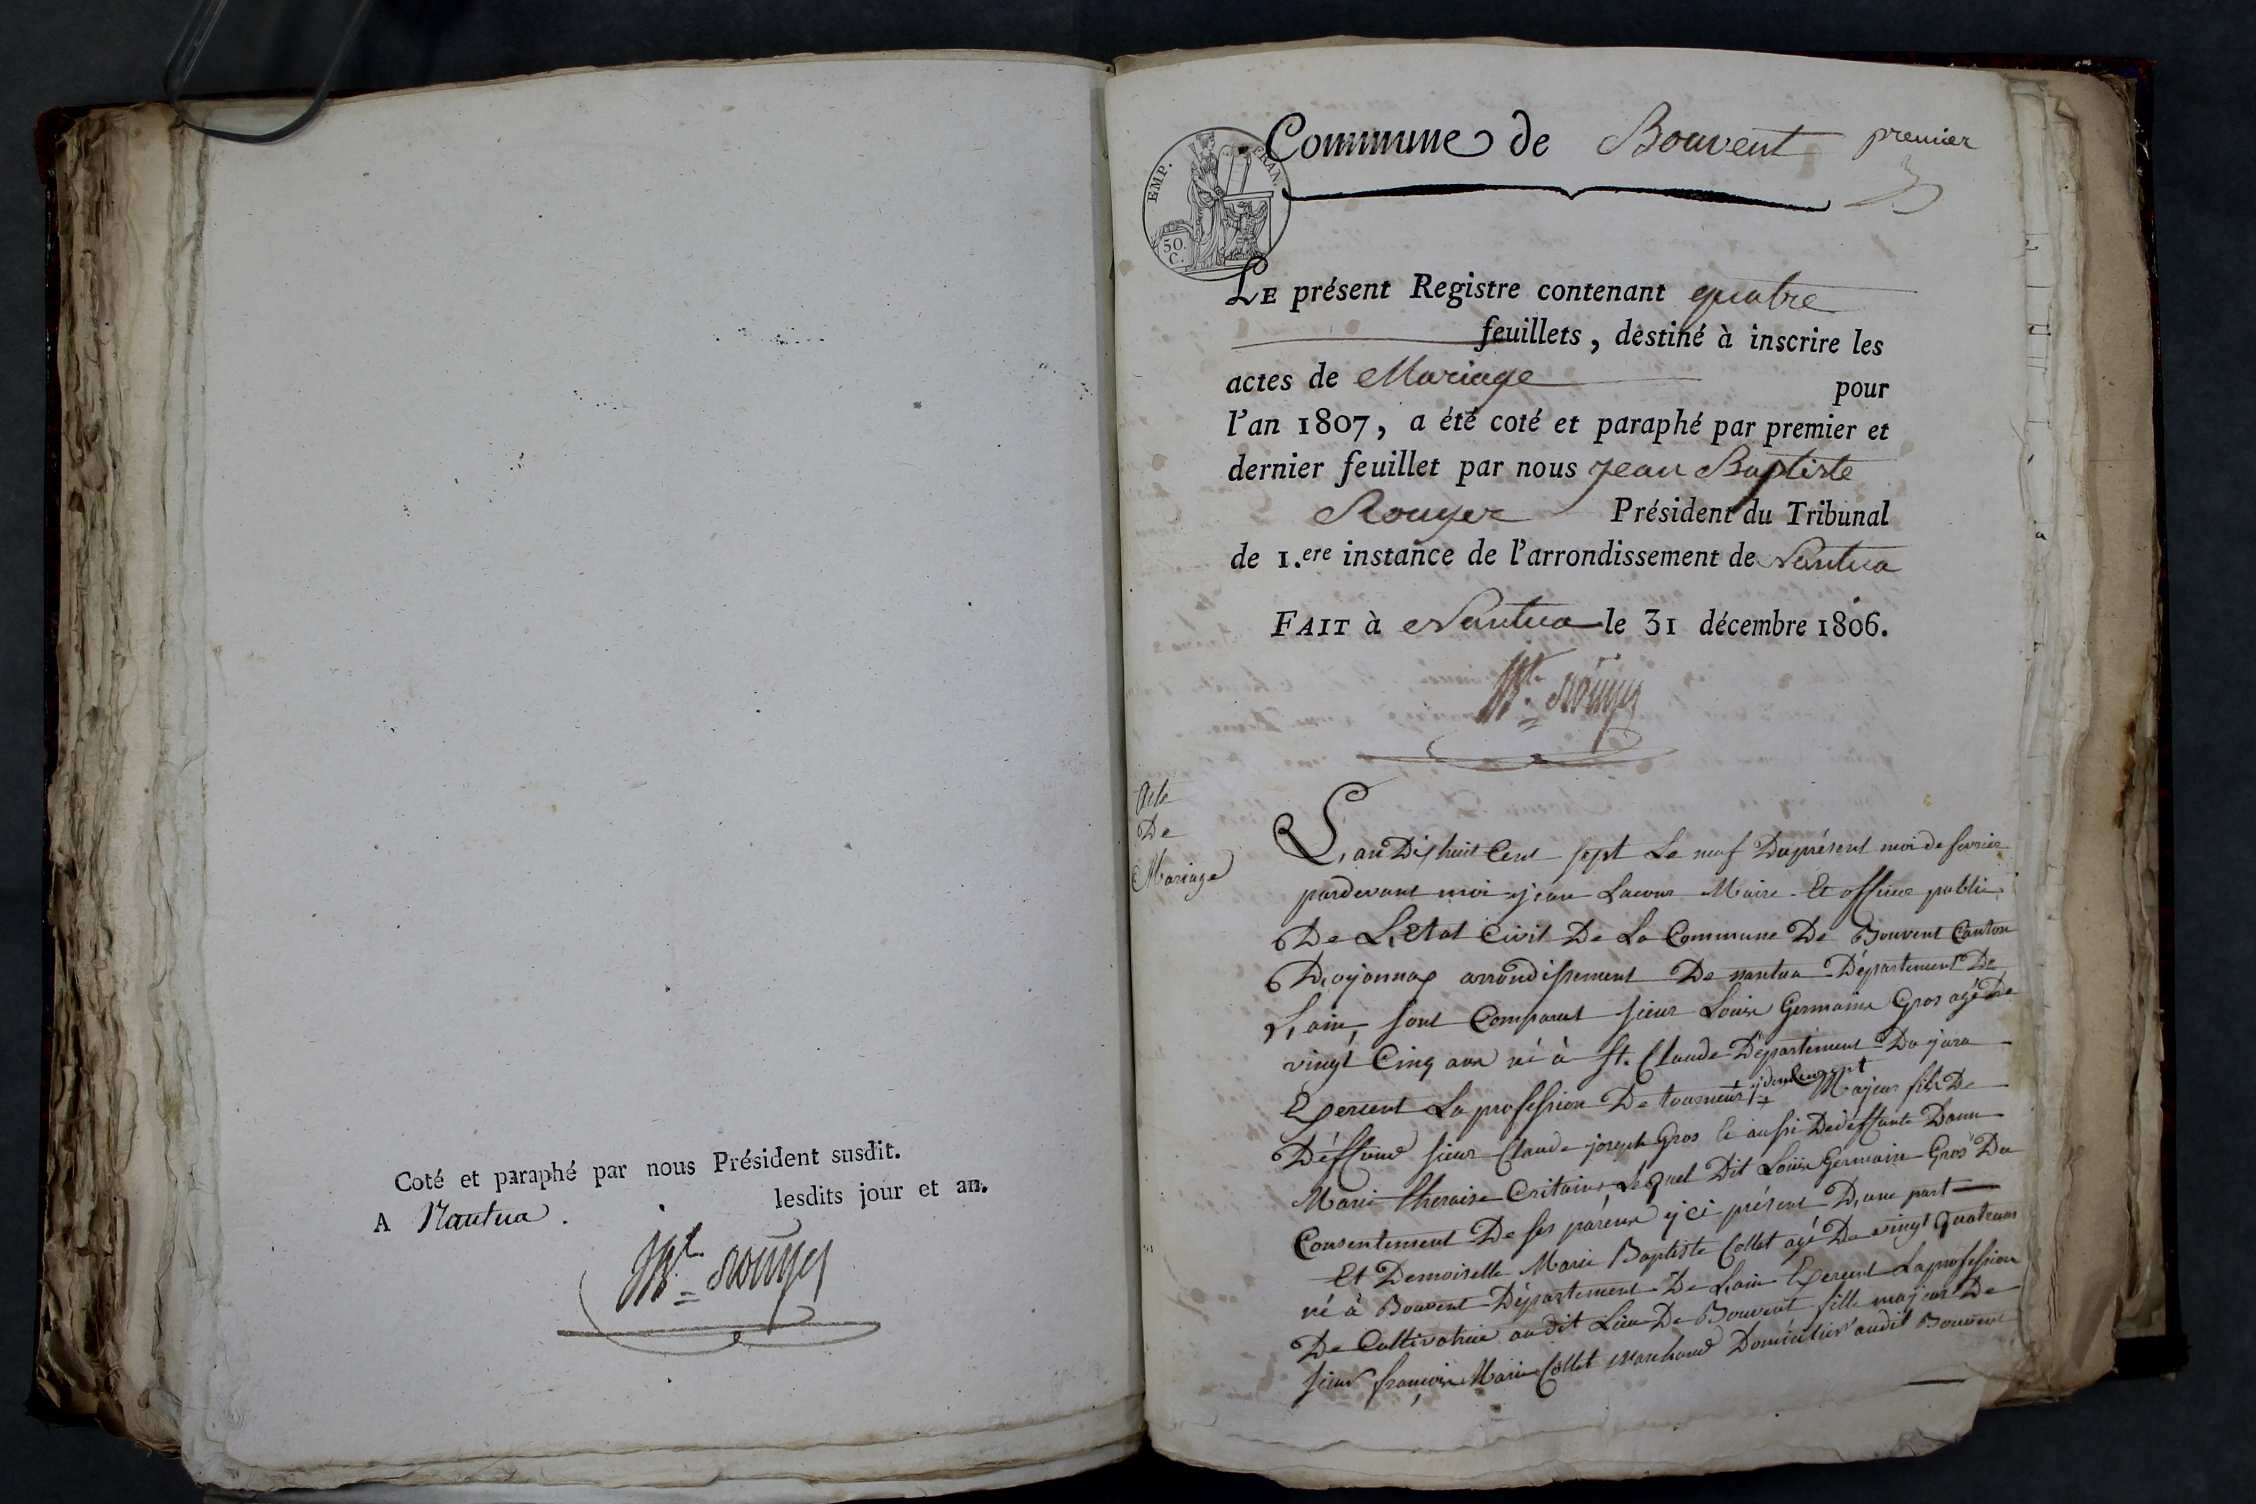 Coté et paraphé par nous Président susdit.
A Nantua . lesdits jour et an.
JBte Rouyer
Commune de Bouvent premier
EMP. FRAN.
50.
C.
LE présent Registre contenant quatre
feuillets, destiné à inscrire les
actes de Mariage pour
l'an 1807, a été coté et paraphé par premier et
dernier feuillet par nous Jean Baptiste
Rouyer Président du Tribunal
de 1.ere instance de l'arrondissement de Nantua
FAIT à Nantua le 31 décembre 1806.
JBte Rouyer
Acte
De
Mariage
L,an Dix huit Cent sept Le neuf Du présent moi de fevrier
pardevant moi jean Lacour Maire Et officier public
De L,Etat Civil De La Commune De Bouvent Canton
D,oyonnax arrondissement De nantua Département De
L,ain, sont Comparut sieur Louis Germain Gros agé De
vingt Cinq ans né à St. Claude Département Du jura
Exercent La profession De tourneur Majeur fils De
Déffund sieur Claude joseph Gros Et aussi De déffunte Dame
Marie theraise Lequel Dit Louis Germain Gros Du
Consentement De ses párens ici présent D,une part
Et Demoiselle Marie Baptiste Collet agé De vingt quatre ans
né à Bouvent Département De L,ain Exercent La profession
De Cultivatrice au dit Lieu De Bouvent fille majeur De
sieur françois Marie Collet Marchand Domicilier audit Bouvent